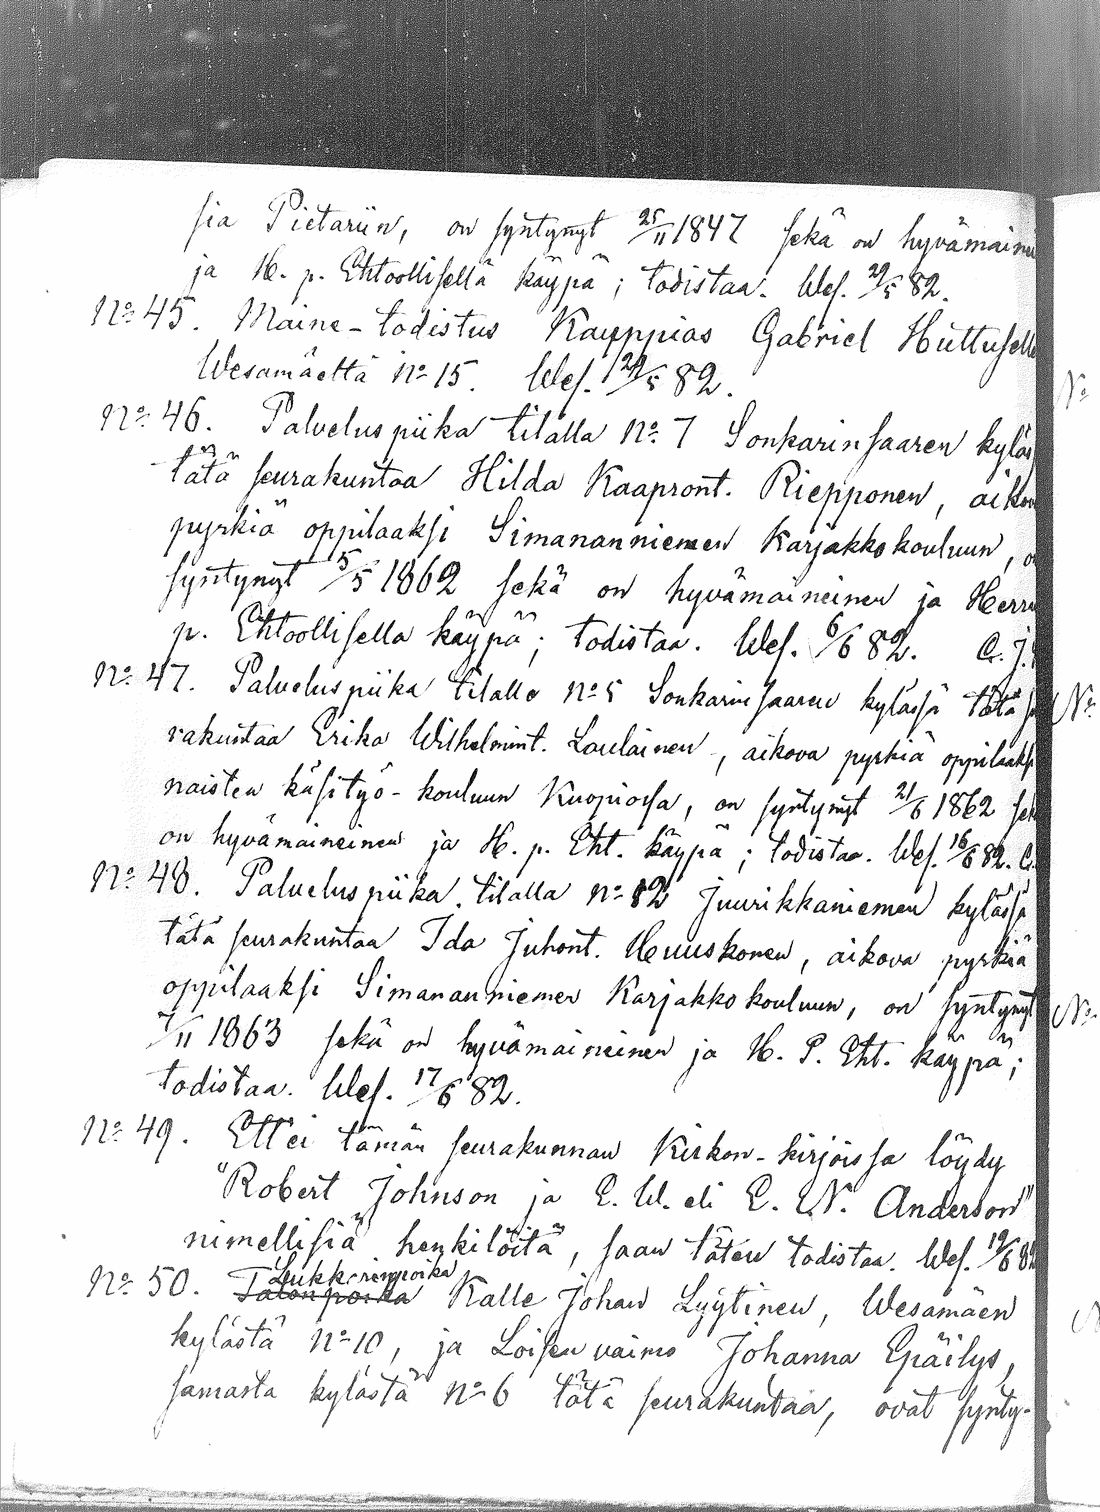 sia Pietariin, on syntynyt 25/11 1847 sekä on hyvämaine
ja H. p. Ehtoollisellä käypä; todistaa. Wes. 29/5 82.
No 45. Maine-todistus Kauppias Gabriel Huttuselle
Wesamäeltä No 15. Wes. 29/5 82.
No 46. Palveluspiika tilalla No 7 Sonkarinsaaren kyläs
tätä seurakuntaa Hilda Kaapront. Riepponen, aikov
pyrkiä oppilaaksi Simananniemen Karjakkokouluun, o
syntynyt 5/5 1862 sekä on hyvämaineinen ja Herra
p. Ehtoollisella käypä; todistaa. Wes. 6/6 82. C. J.
No 47. Palveluspiika tilalla No 5 Sonkarinsaaren kylässä tätä s
rakuntaa Erika Wilhelmint. Laulainen, aikova pyrkiä oppilaaksi
naisten käsityö-kouluun Kuopiossa, on syntynyt 21/6 1862 sek
on hyvämaineinen ja H. p. Eht. käypä; todistaa. Wes. 16/6 82. C.
No 48. Palveluspiika tilalla No 12 Juurikkaniemen kylässä
tätä seurakuntaa Ida Juhont. Huuskonen, aikova pyrkiä
oppilaaksi Simananniemen Karjakkokouluun, on syntynyt
7/11 1863 sekä on hyvämaineinen ja H. P. Eht. käypä;
todistaa. Wes. 17/6 82.
No 49. Ettei tämän seurakunnan Kirkon-kirjoissa löydy
"Robert Johnson ja E. W. eli E. N. Anderson"
nimellisiä henkilöitä, saan täten todistaa. Wes. 19/6 82
Leskk:renpoika
No 50. Talonpoika Kalle Johan Lyytinen, Wesamäen
kylästä No 10, ja Loisen vaimo Johanna Epäilys,
samasta kylästä No 6 tätä seurakuntaa, ovat synty-